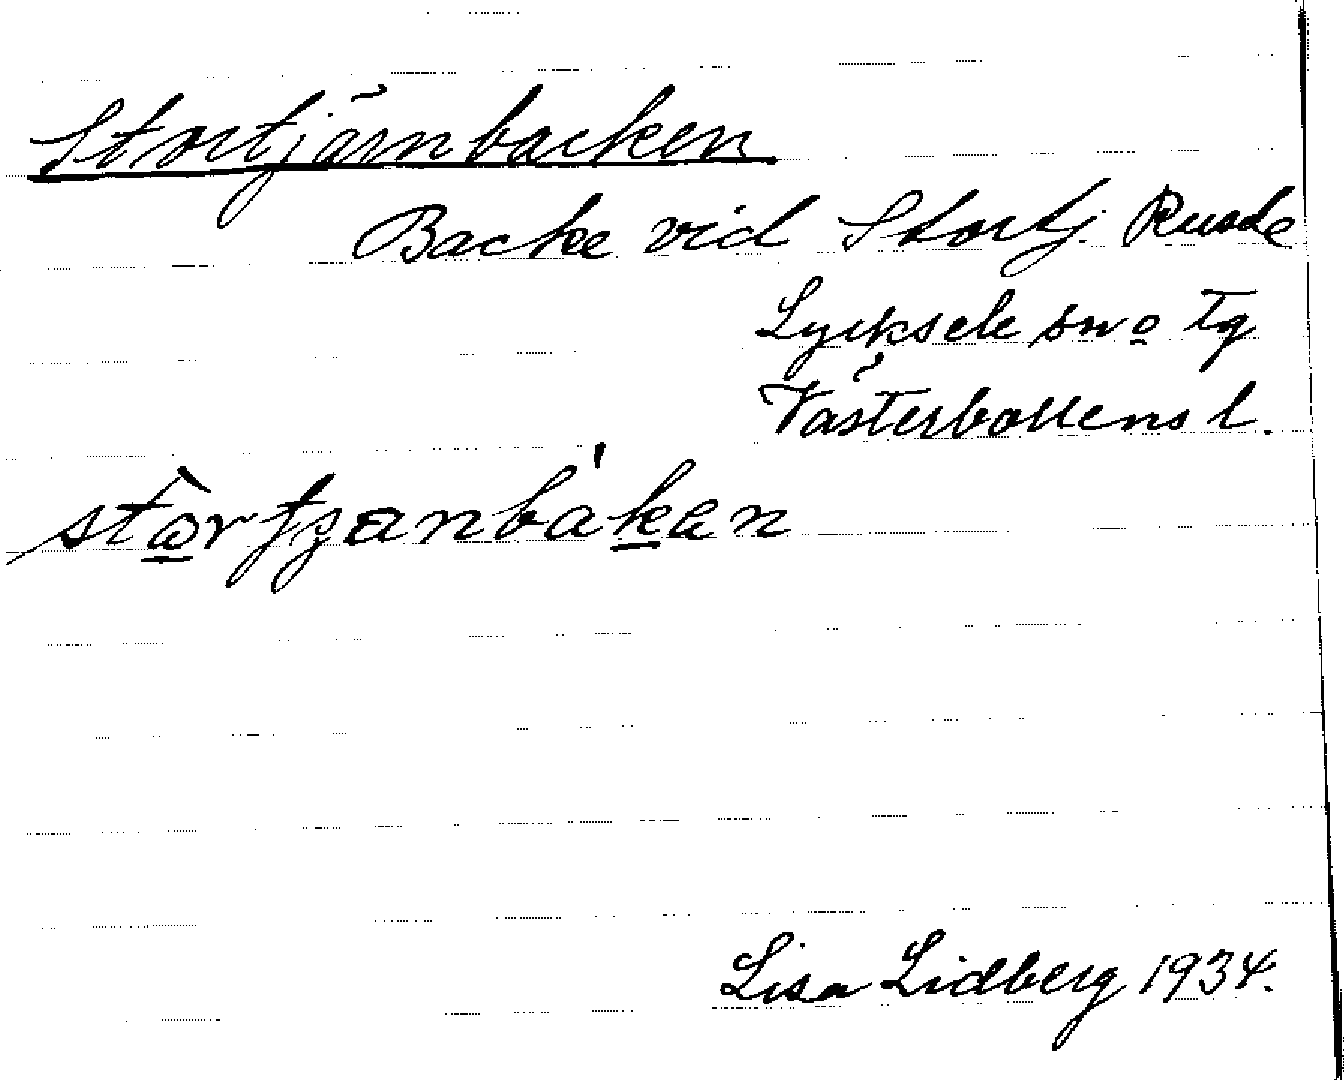 Stortjärnbacken
Backe vid Stortj. Rusele
Lycksele sn o tg
Västerbottens l.
Lisa Lidberg 1934.